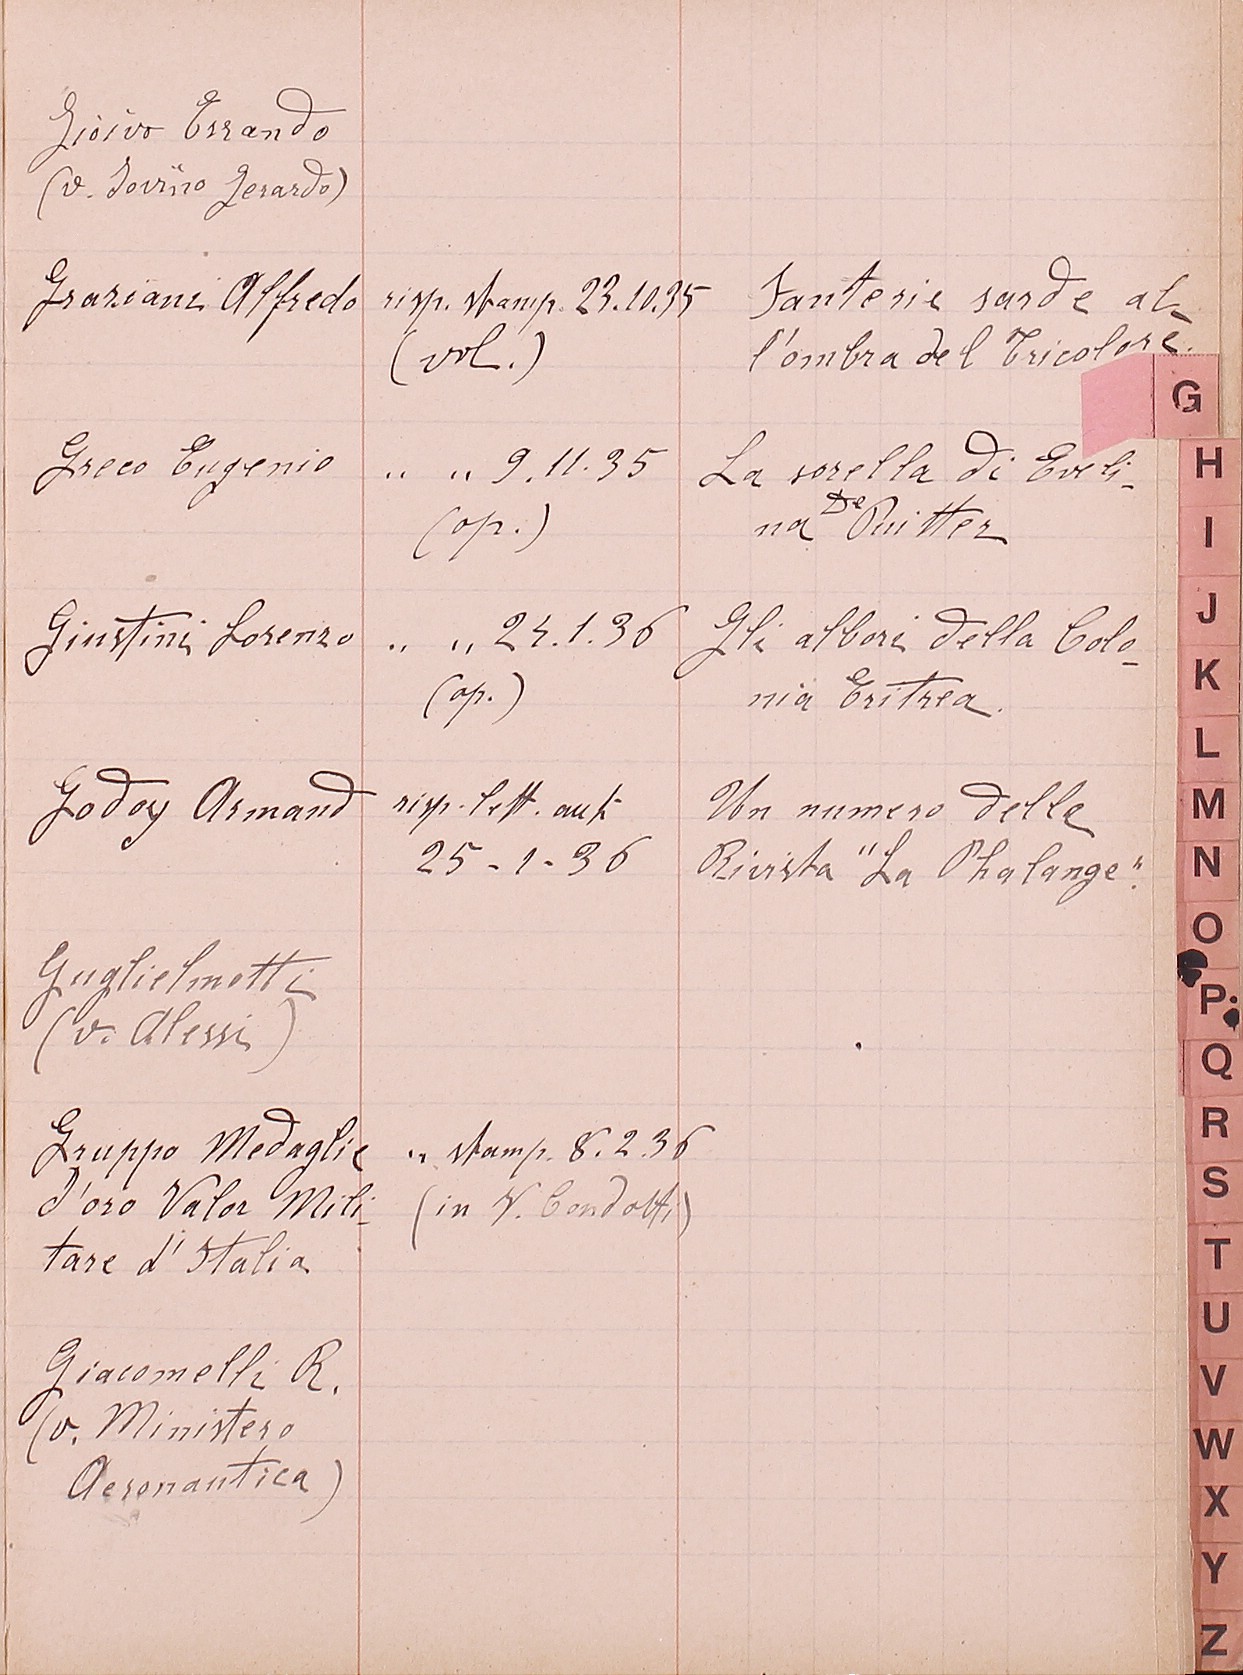 Gioivo Errando
(v. Iovino Gerardo)
Graziani Alfredo risp. stamp. 23.10.35 Fanterie sarde al-
(vol.) l'ombra del Tricolore.
Greco Eugenio " " 9.11.35 La sorella di Eveli-
(op.) na De Puitter
Giustini Lorenzo " " 24.1.36 Gli albori della Colo-
(op.) nia Eritrea.
Godoy Armand risp. lett. aut. Un numero della
25-1-36 Rivista "La Phalange".
Guglielmotti
(v. Alessi)
Gruppo Medaglie " stamp. 8.2.36
d'oro Valor Mili- (in V. Condotti)
tare d'Italia
Giacomelli R.
(v. Ministero
Aeronautica)
G
H
I
J
K
L
M
N
O
P
Q
R
S
T
U
V
W
X
Y
Z